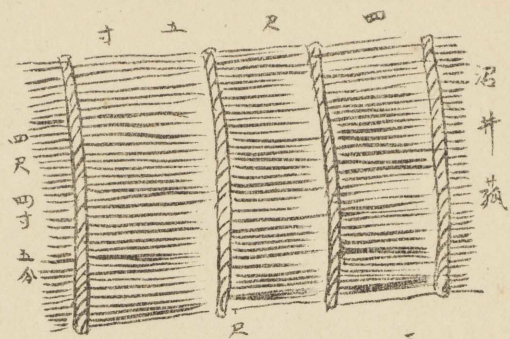 四尺五寸
沼井菰
四尺四寸五分
尺